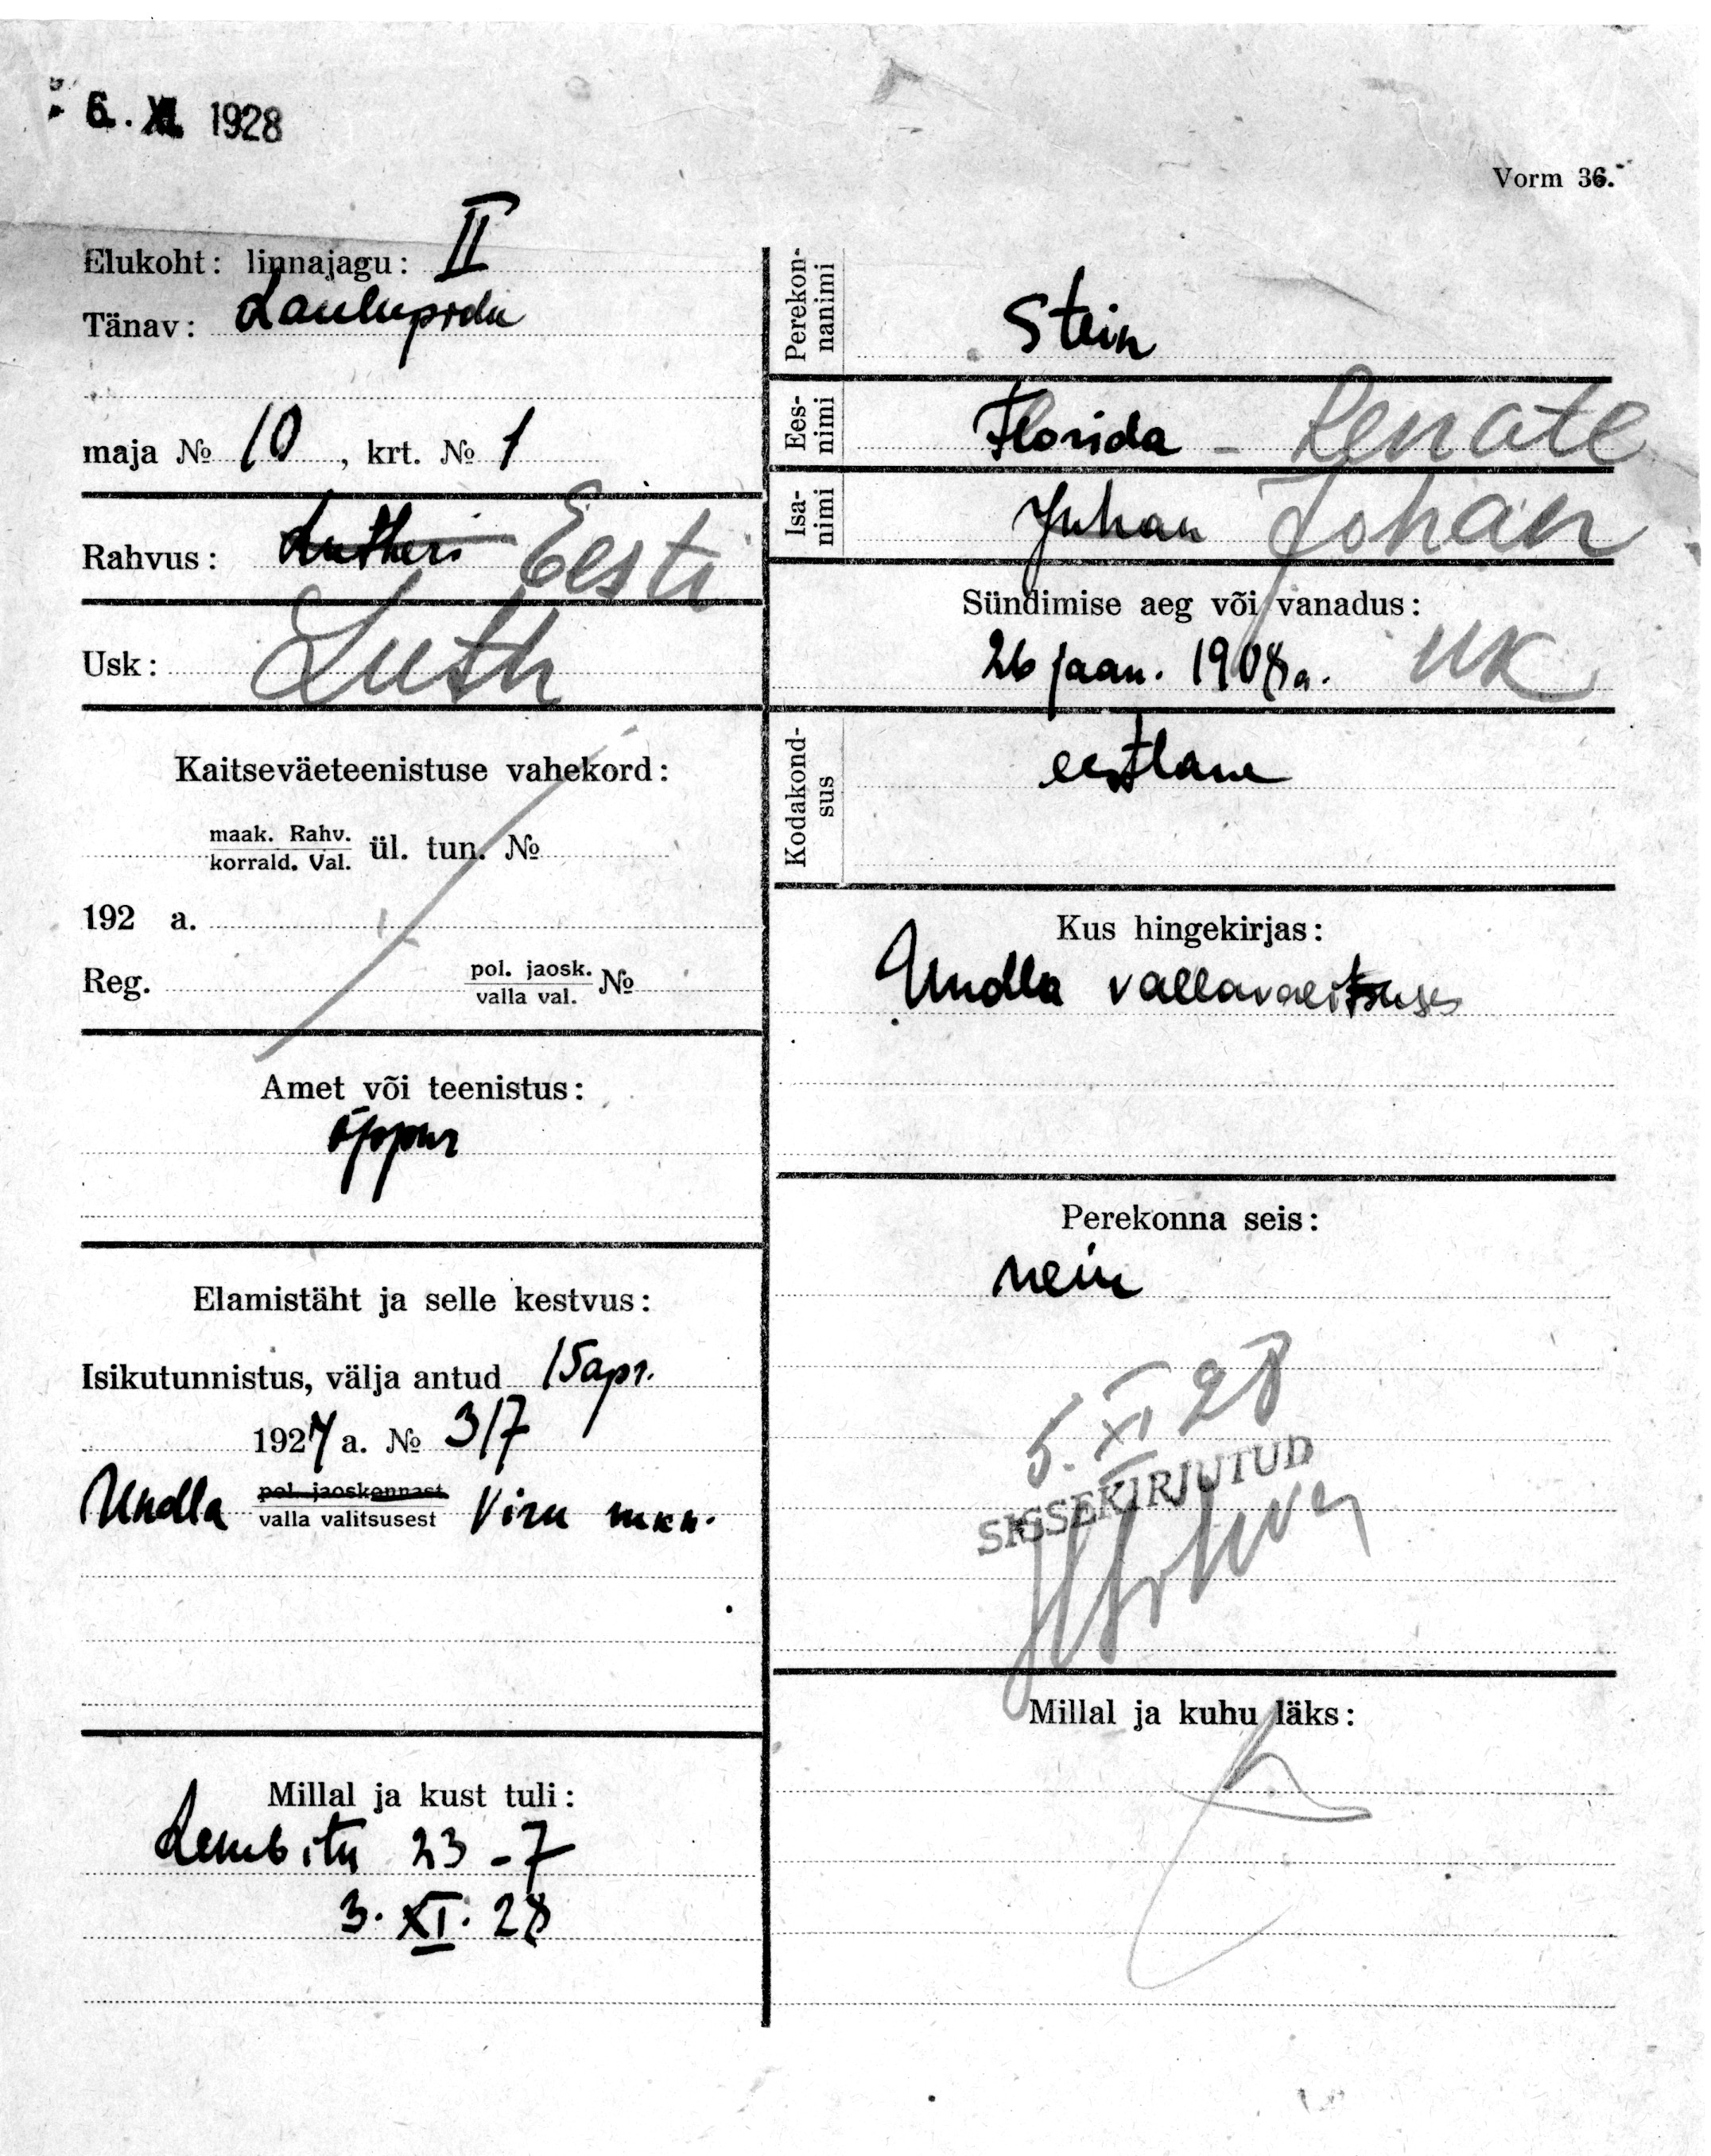 6. XI. 1928
Vorm 36.
Elukoht: linnajagu: II
Tänav: Laulupidu
maja № 10, krt. № 1
Rahvus: Lutheri Eesti
Usk: Luth
Kaitseväeteenistuse vahekord:
maak. Rahv.
korrald. Val. ül. tun. №
192 a.
Reg. pol. jaosk.
valla val. №
Amet või teenistus:
õppur
Elamistäht ja selle kestvus:
Isikutunnistus, välja antud 15 apr.
1927 a. № 317
Undla pol. jaoskonnast
valla valitsusest Viru mkn.
Millal ja kust tuli:
Lembitu 23-7
3. XI. 28
Perekonnanimi
Stein
Eesnimi
Florida - Renate
Isanimi
Juhan Johan
Sündimise aeg või vanadus:
26 jaan. 1908 a.
Kodakondsus
eestlane
Kus hingekirjas:
Undla vallavalitsuses
Perekonna seis:
nein
5. XI 28
SISSEKIRJUTUD
Millal ja kuhu läks: